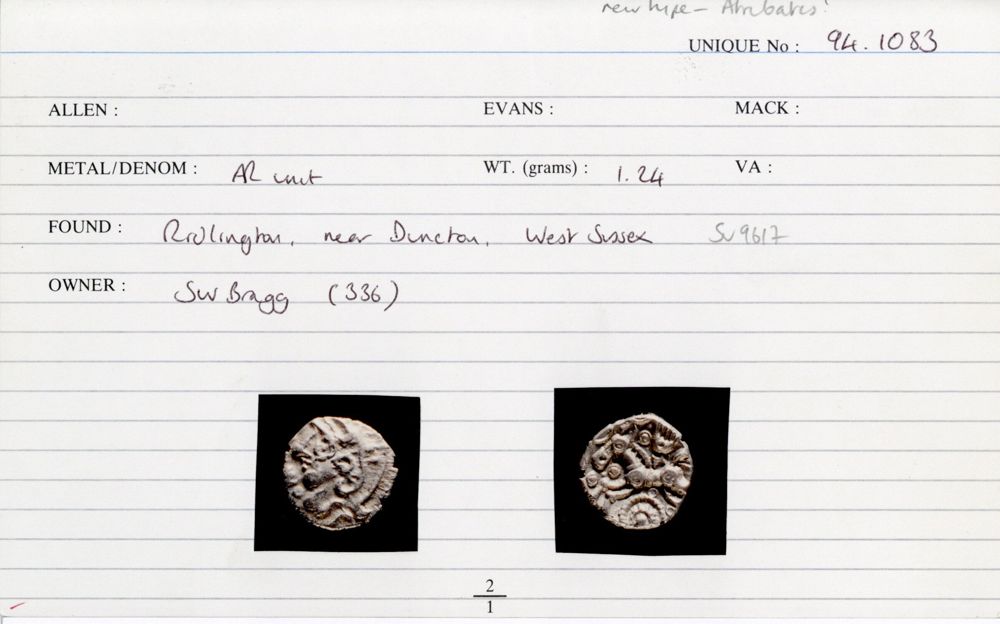 new type - Atrebates?
UNIQUE No : 94.1083
ALLEN : EVANS : MACK :
METAL/DENOM : AR unit WT. (grams) : 1.24 VA :
FOUND : Ridlington, near Duncton, West Sussex SU9617
OWNER : SW Bragg (336)
2
1